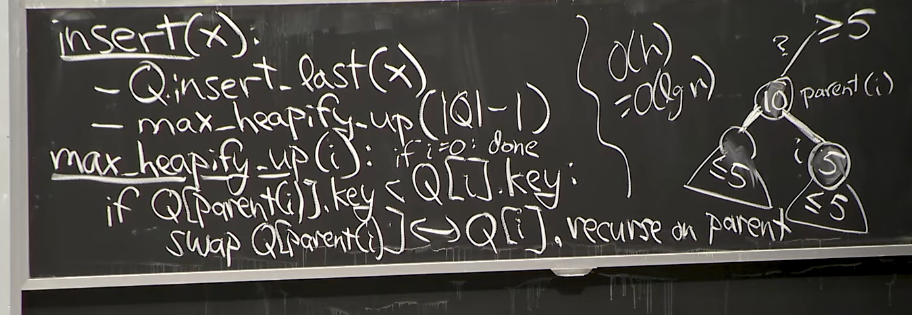 insert(x):
- Q.insert_last(x)
- max_heapify_up(|Q|-1)
max_heapify_up(i): if i=0: done
if Q[parent(i)].key < Q[i].key:
swap Q[parent(i)] ↔ Q[i], recurse on parent
O(h)
=O(lg n)
? ≥5
10 parent(i)
i 5
≤5
≤5